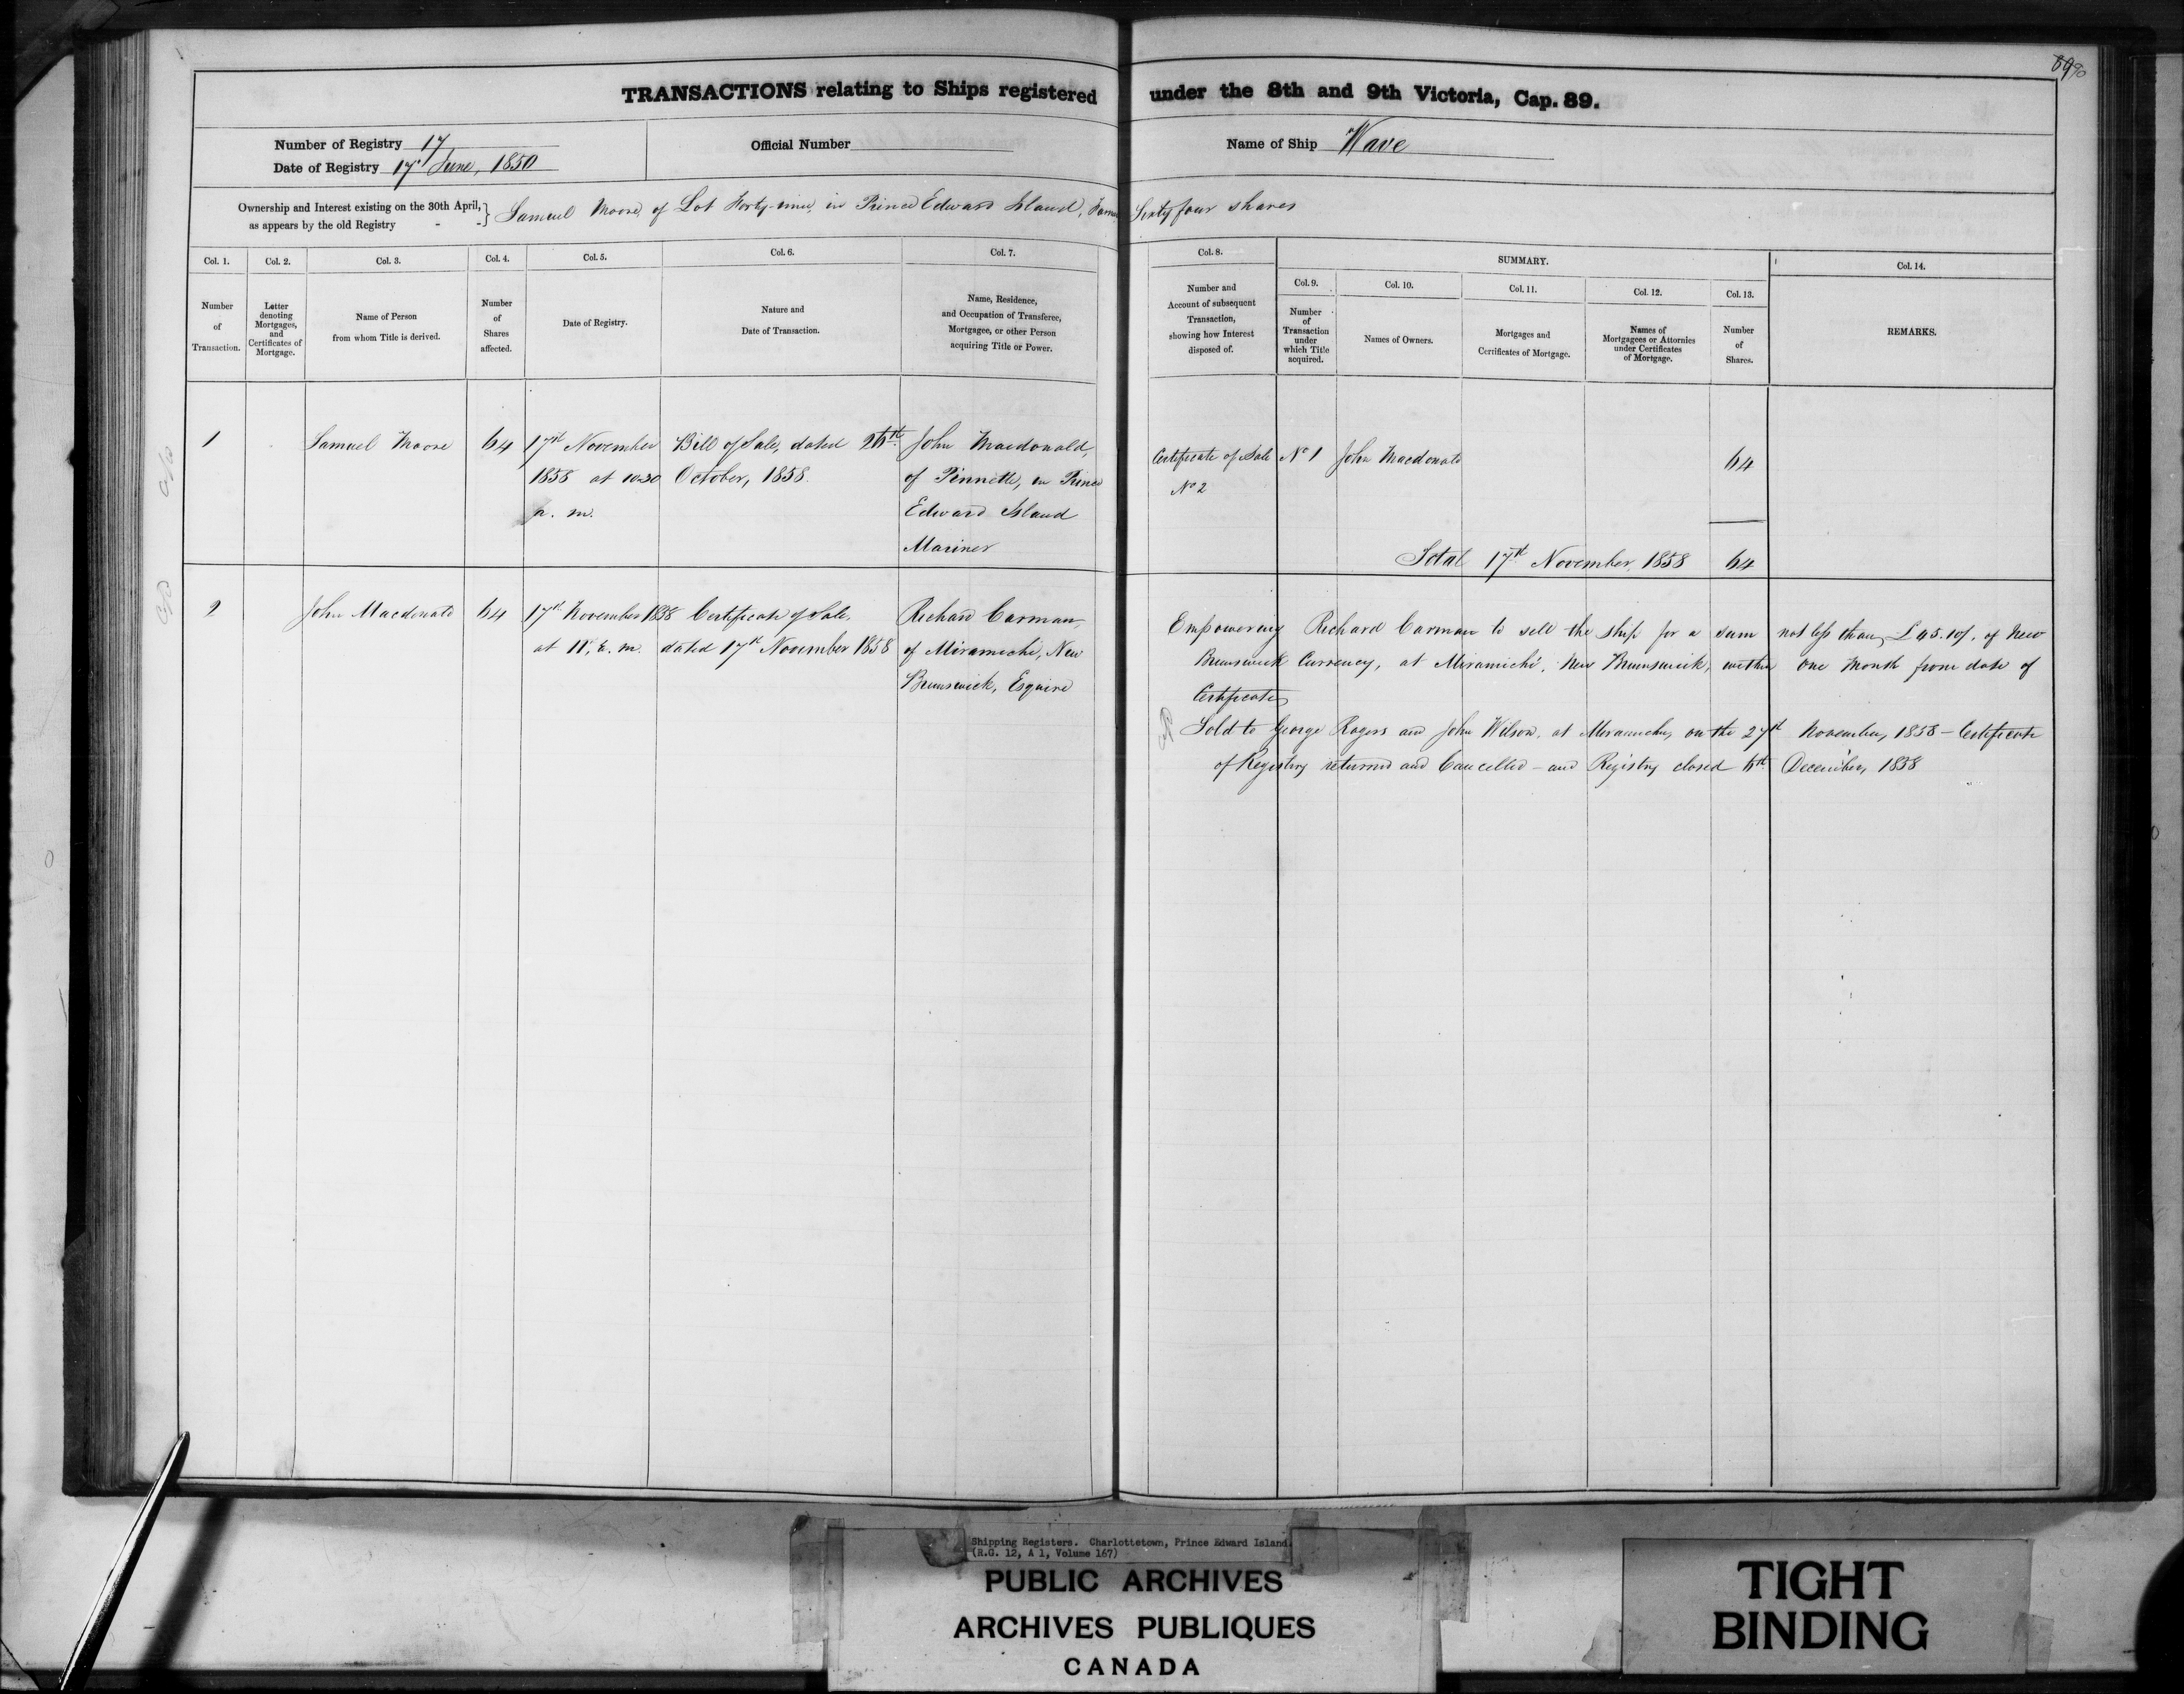 89 90
TRANSACTIONS relating to Ships registered under the 8th and 9th Victoria, Cap. 89.
Number of Registry 17
Date of Registry 17th June, 1850
Official Number
Name of Ship "Wave
Ownership and Interest existing on the 30th April, as appears by the old Registry - - } Samuel Moore, of Lot Forty-nine, in Prince Edward Island, Sixty four shares
Col. 1.
Number
of
Transaction.
Col. 2.
Letter
denoting
Mortgages,
and
Certificates of
Mortgage.
Col. 3.
Name of Person
from whom Title is derived.
Col. 4.
Number
of
Shares
affected.
Col. 5.
Date of Registry.
Col. 6.
Nature and
Date of Transaction.
Col. 7.
Name, Residence,
and Occupation of Transferee,
Mortgagee, or other Person
acquiring Title or Power.
Col. 8.
Number and
Account of subsequent
Transaction,
showing how Interest
disposed of.
SUMMARY.
Col. 9.
Number
of
Transaction
under
which Title
acquired.
Col. 10.
Names of Owners.
Col. 11.
Mortgages and
Certificates of Mortgage.
Col. 12.
Names of
Mortgagees or Attornies
under Certificates
of Mortgage.
Col. 13.
Number
of
Shares.
Col. 14.
REMARKS.
1
Samuel Moore
64
17th November
1858 at 10.30
p. m.
Bill of Sale, dated 26th
October, 1858.
John Macdonald,
of Pinnette, in Prince
Edward Island
Mariner
Certificate of Sale
No 2
No 1
John Macdonald
64
Total 17th November, 1858 64
2
John Macdonald
64
17th November 1858
at 11, m.
Certificate of Sale,
dated 17th November 1858
Richard Carman,
of Miramichi, New
Brunswick, Esquire
Empowering Richard Carman to sell the ship for a sum not less than £45.10/, of New
Brunswick Currency, at Miramichi, New Brunswick, within one Month from date of
Certificate
Sold to George Rogers and John Wilson, at Miramichi, on the 27th November, 1858 - Certificate
of Registry returned and Cancelled - and Registry closed 6th December, 1858
Shipping Registers. Charlottetown, Prince Edward Island.
(R.G. 12, A 1, Volume 167)
PUBLIC ARCHIVES
ARCHIVES PUBLIQUES
CANADA
TIGHT
BINDING